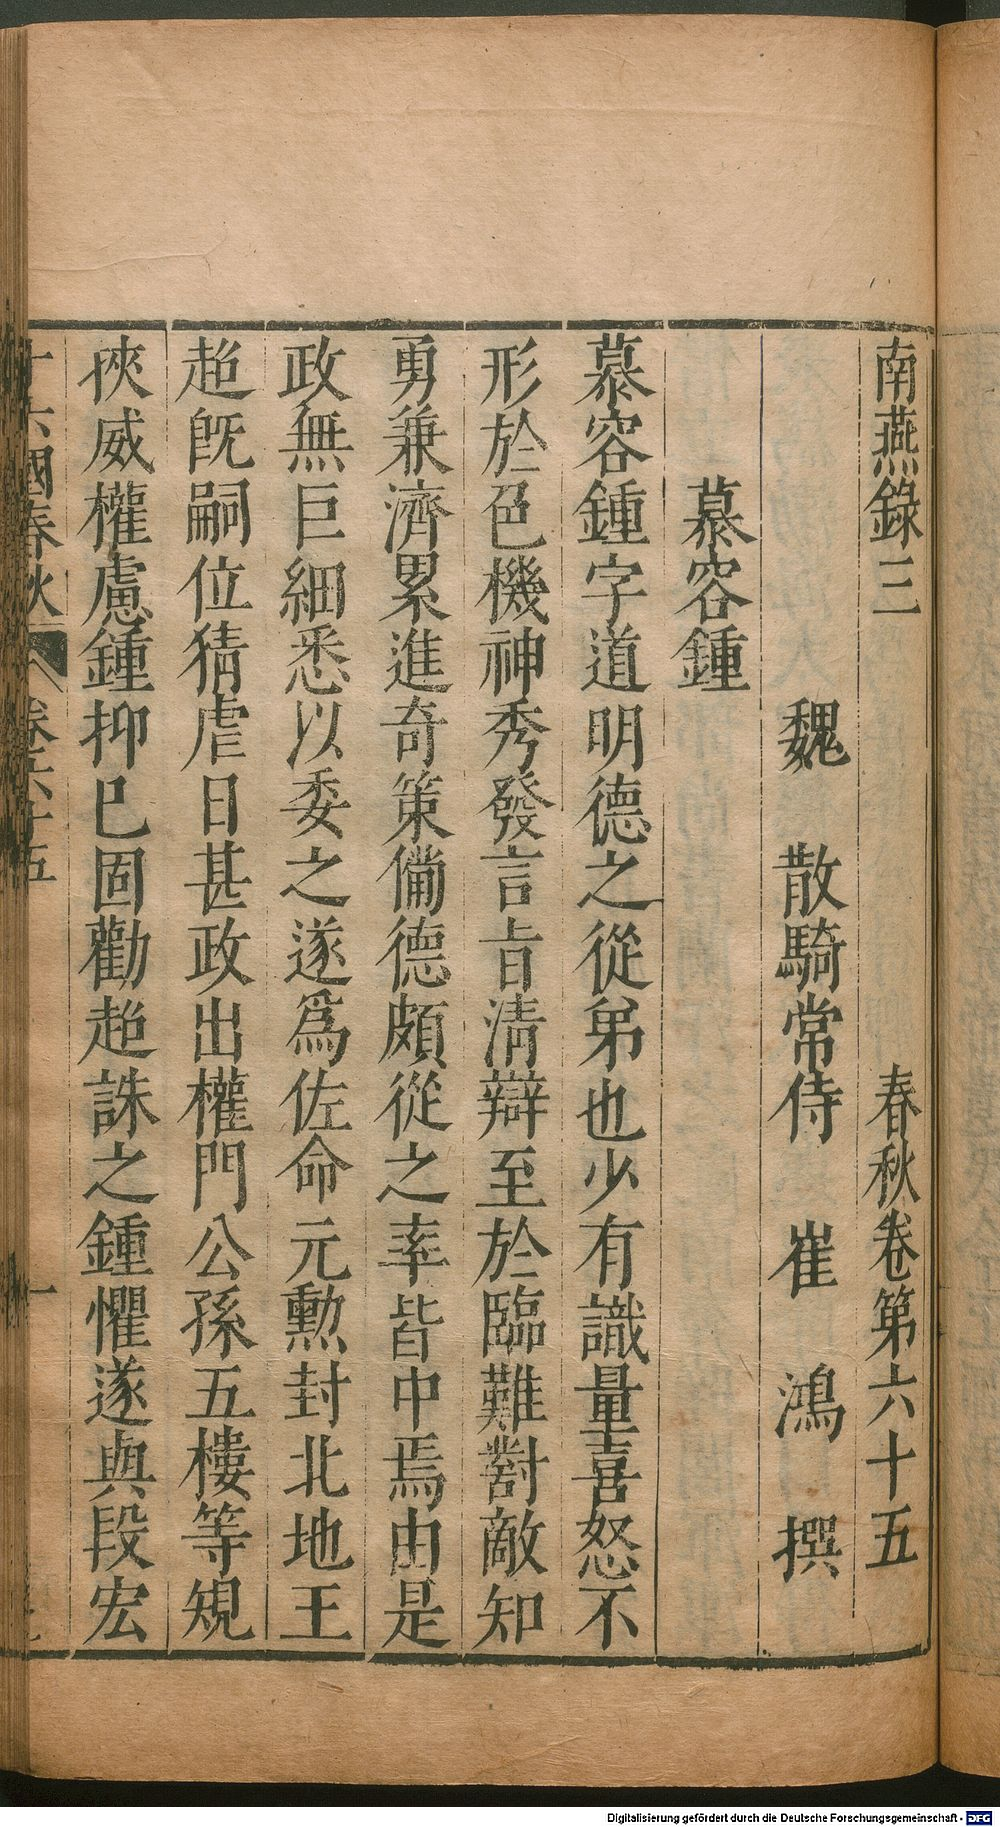 南燕錄三　春秋卷第六十五
魏　散騎常侍　崔　鴻　撰
慕容鍾
慕容鍾字道明德之從弟也少有識量喜怒不
形於色機神秀發言旨清辯至於臨難對敵知
勇兼濟累進奇策備德頗從之率皆中焉由是
政無巨細悉以委之遂爲佐命元勲封北地王
超旣嗣位猜虐日甚政出權門公孫五樓等規
挾威權慮鍾抑巳固勸超誅之鍾懼遂與段宏
十六國春秋　卷六十五　一
Digitalisierung gefördert durch die Deutsche Forschungsgemeinschaft - DFG